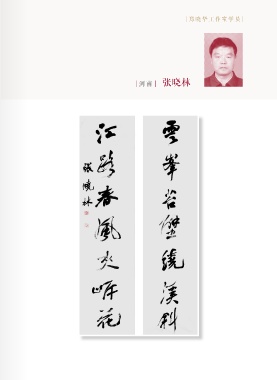 |郑晓华工作室学员|
|河南| 张晓林
雲峯苔壁繞溪斜
江路春風夾岸花
張曉林